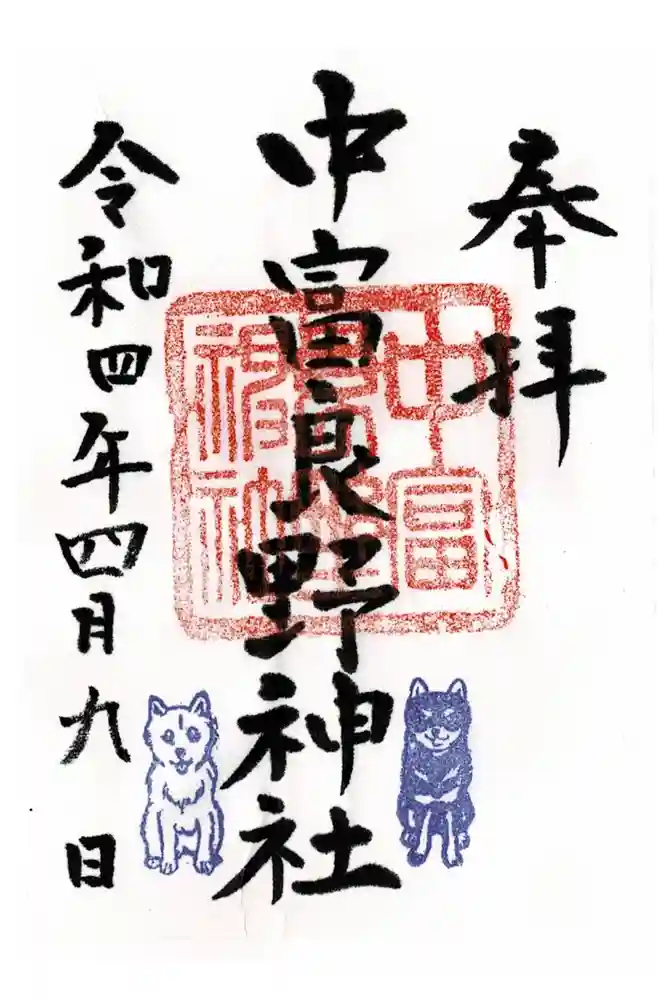 奉拝
中富良野神社
令和四年四月九日
中富
良野
神社